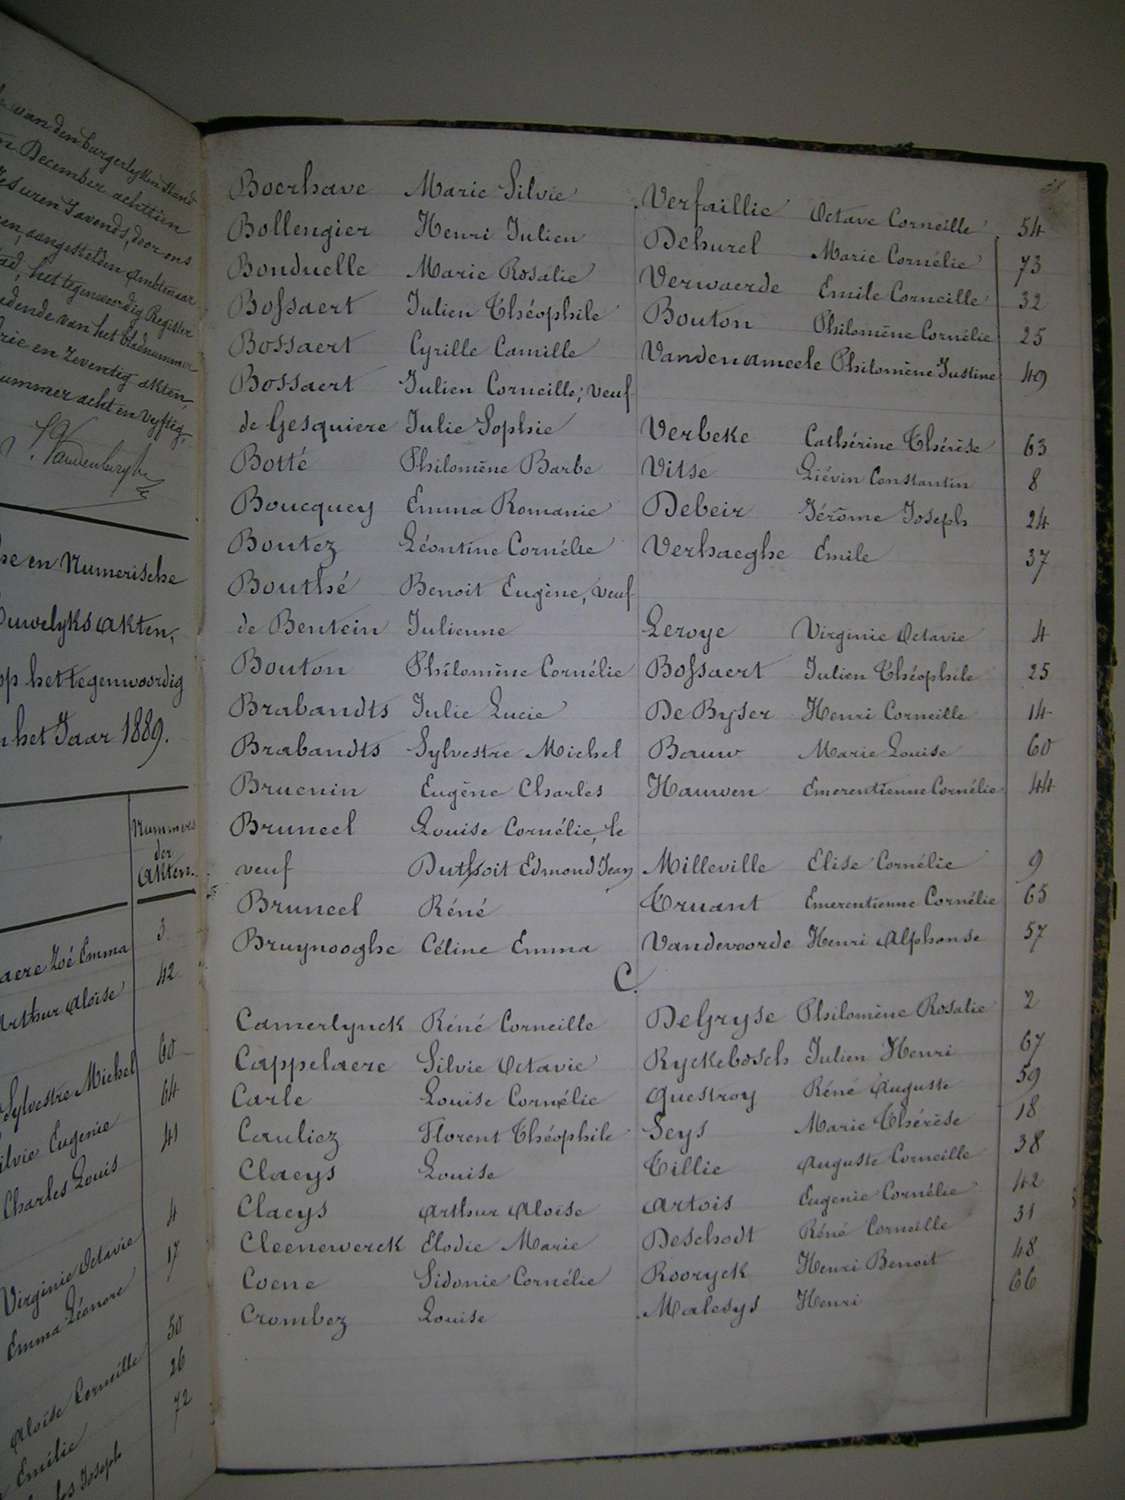 van den burgerlyken stand
December achttien
uren 's avonds, door ons
aangestelden ambtenaar
het tegenwoordig Register
van het bladnummer
en zeventig akten,
nummer acht en vyftig.
Vandenberghe
en Numerische
Huwelyksakten,
op het tegenwoordig
het Jaar 1889.
Nummers
der
Akten.
Zoé Emma 3
Arthur Aloïse 42
Sylvestre Michel 60
Silvie Eugenie 64
Charles Louis 41
Virginie Octavie 4
Emma Léonore 17
50
Aloïse Corneille 26
Emilie 72
Joseph
Boerhave Marie Silvie Verfaillie Octave Corneille 54
Bollengier Henri Julien Dehurel Marie Cornélie 73
Bonduelle Marie Rosalie Verwaerde Emile Corneille 32
Bossaert Julien Théophile Bouton Philomène Cornélie 25
Bossaert Cyrille Camille Vandenameele Philomène Justine 49
Bossaert Julien Corneille, veuf
de Gesquiere Julie Sophie Verbeke Cathérine Thérèse 63
Botté Philomène Barbe Vitse Liévin Constantin 8
Boucquey Emma Romanie Debeir Jérôme Joseph 24
Boutez Léontine Cornélie Verhaeghe Emile 37
Bouthé Benoit Eugène, veuf
de Bentein Julienne Leroye Virginie Octavie 4
Bouton Philomène Cornélie Bossaert Julien Théophile 25
Brabandts Julie Lucie De Byser Henri Corneille 14
Brabandts Sylvestre Michel Bauw Marie Louise 60
Bruenin Eugène Charles Hauwen Emerentienne Cornélie 44
Bruneel Louise Cornélie, le
veuf Duthoit Edmond Jean Milleville Elise Cornélie 9
Bruneel Réné Truant Emerentienne Cornélie 65
Bruynooghe Céline Emma Vandevoorde Henri Alphonse 57
C.
Camerlynck Réné Corneille DeGryse Philomène Rosalie 2
Cappelaere Silvie Octavie Ryckebosch Julien Henri 67
Carle Louise Cornélie Questroy Réné Auguste 59
Cauliez Florent Théophile Seys Marie Thérèse 18
Claeys Louise Tillie Auguste Corneille 38
Claeys Arthur Aloïse Artois Eugenie Cornélie 42
Cleenewerck Elodie Marie Deschodt Réné Corneille 31
Coene Sidonie Cornélie Rooryck Henri Benoit 48
Crombez Louise Malesys Henri 66